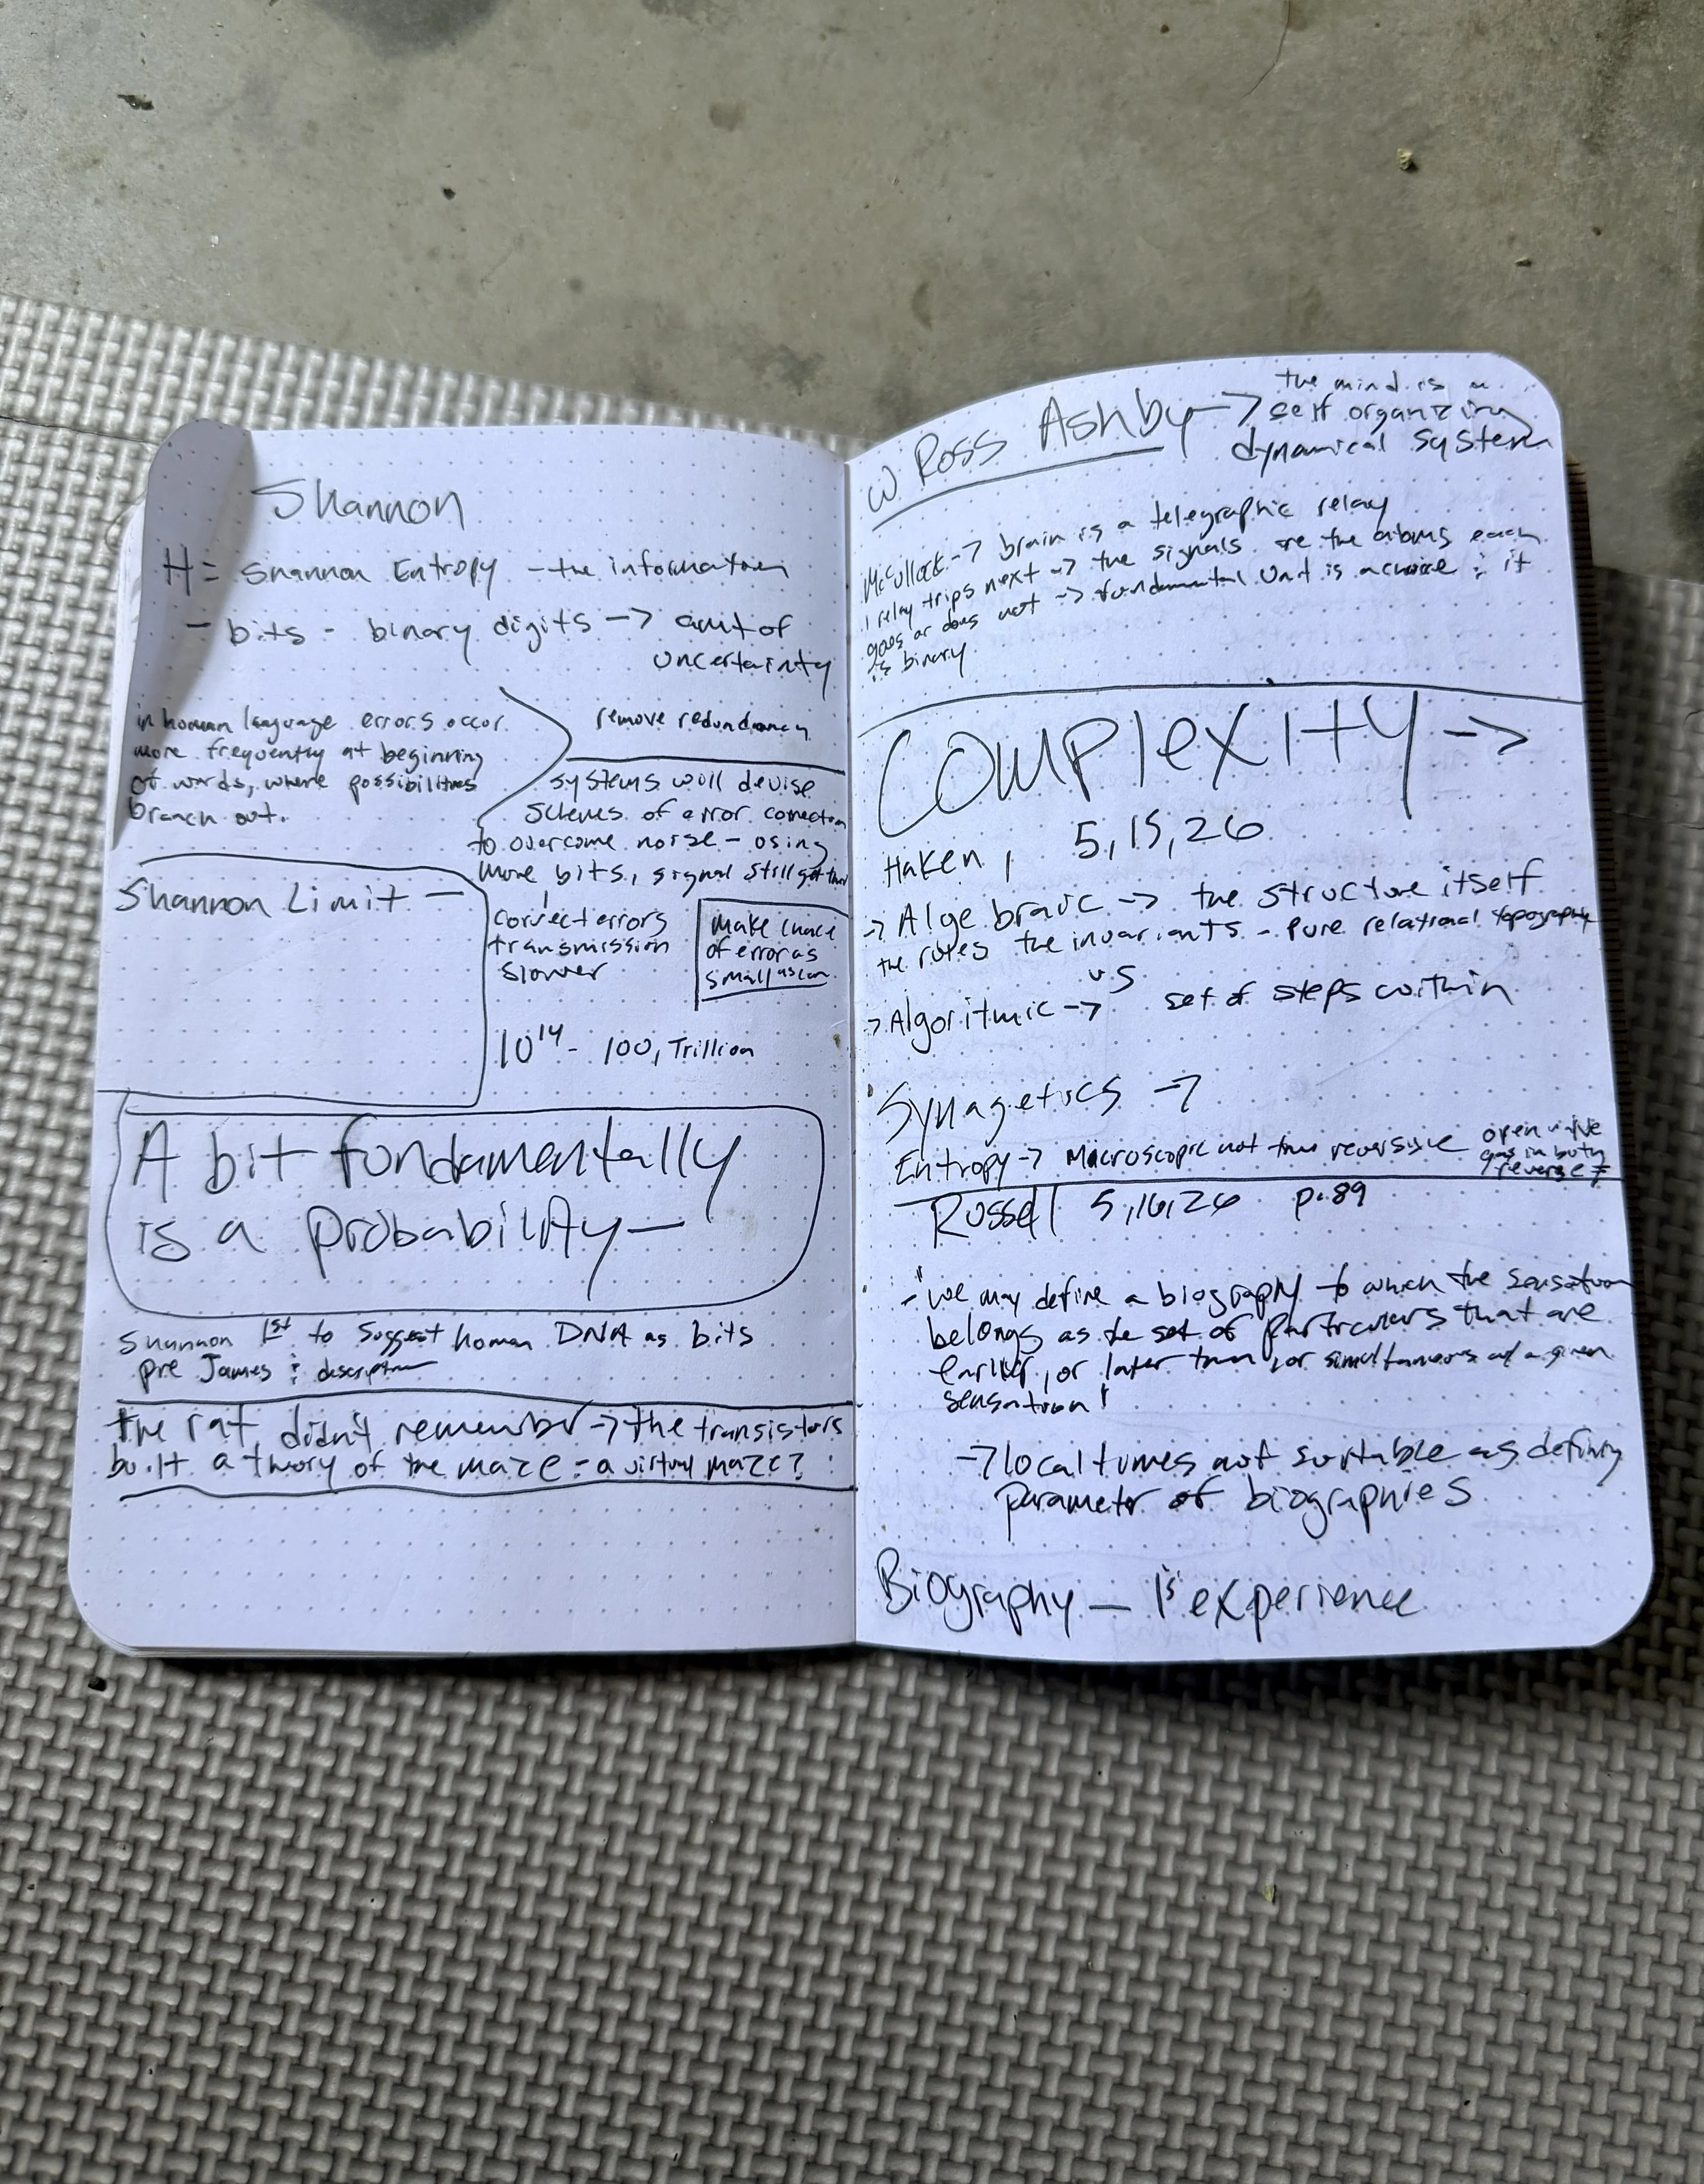 Shannon
H = Shannon Entropy - the information
- bits - binary digits -> amt of
uncertainty
in human language errors occur
more frequently at beginning
of words, where possibilities
branch out.
remove redundancy
systems will devise
schemes of error correction
to overcome noise - using
more bits, signal still get thru
Shannon Limit -
correct errors
transmission
slower
make chance
of error as
small as can
10^14 - 100, Trillion
A bit fundamentally
is a probability -
Shannon 1st to suggest human DNA as bits
pre James : description
the rat didn't remember -> the transistors
built a theory of the maze - a virtual maze?
W Ross Ashby -> the mind is a
self organizing
dynamical system
McCulloch -> brain is a telegraphic relay
1 relay trips next -> the signals are the atoms each
goes or does not -> fundamental Unit is a choice : it
is binary
Complexity ->
Haken, 5,15,26
-> Algebraic -> the structure itself
the rules the invariants - pure relational topography
vs
-> Algoritmic -> set of steps within
Synagetics ->
Entropy -> Microscopic not time reversive
open valve
gas in both
reverse =
Russell 5,16,26 p.89
- "we may define a biography to which the sensation
belongs as the set of particulars that are
earlier, or later than, or simultaneous w/ a given
sensation"
-> local times not suitable as defining
parameter of biographies
Biography - 1's experience